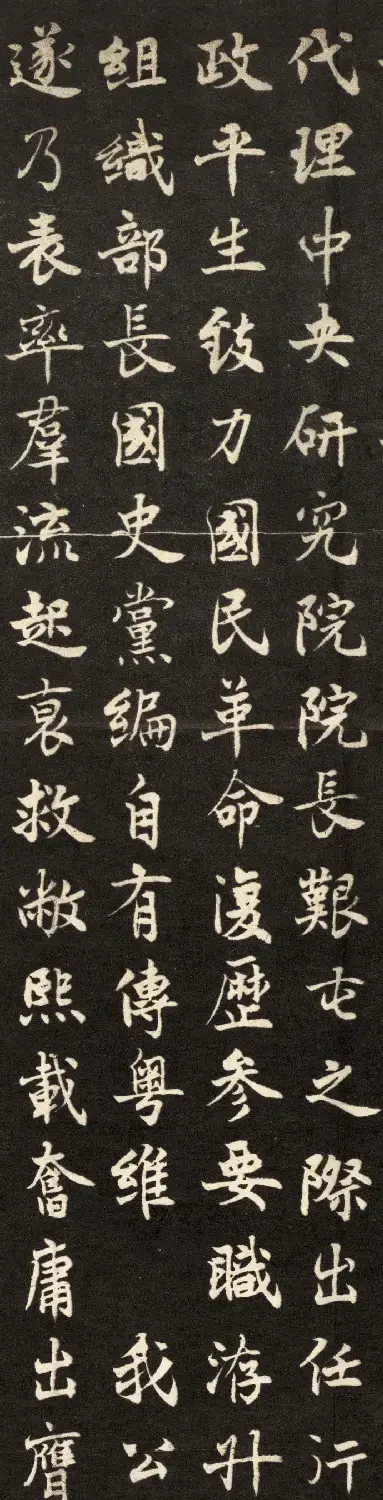 代理中央研究院院長艱屯之際出任行
政平生致力國民革命復歷參要職洊升
組織部長國史黨編自有傳粵維　我公
遂乃表率羣流起衰救敝熙載奮庸出膺